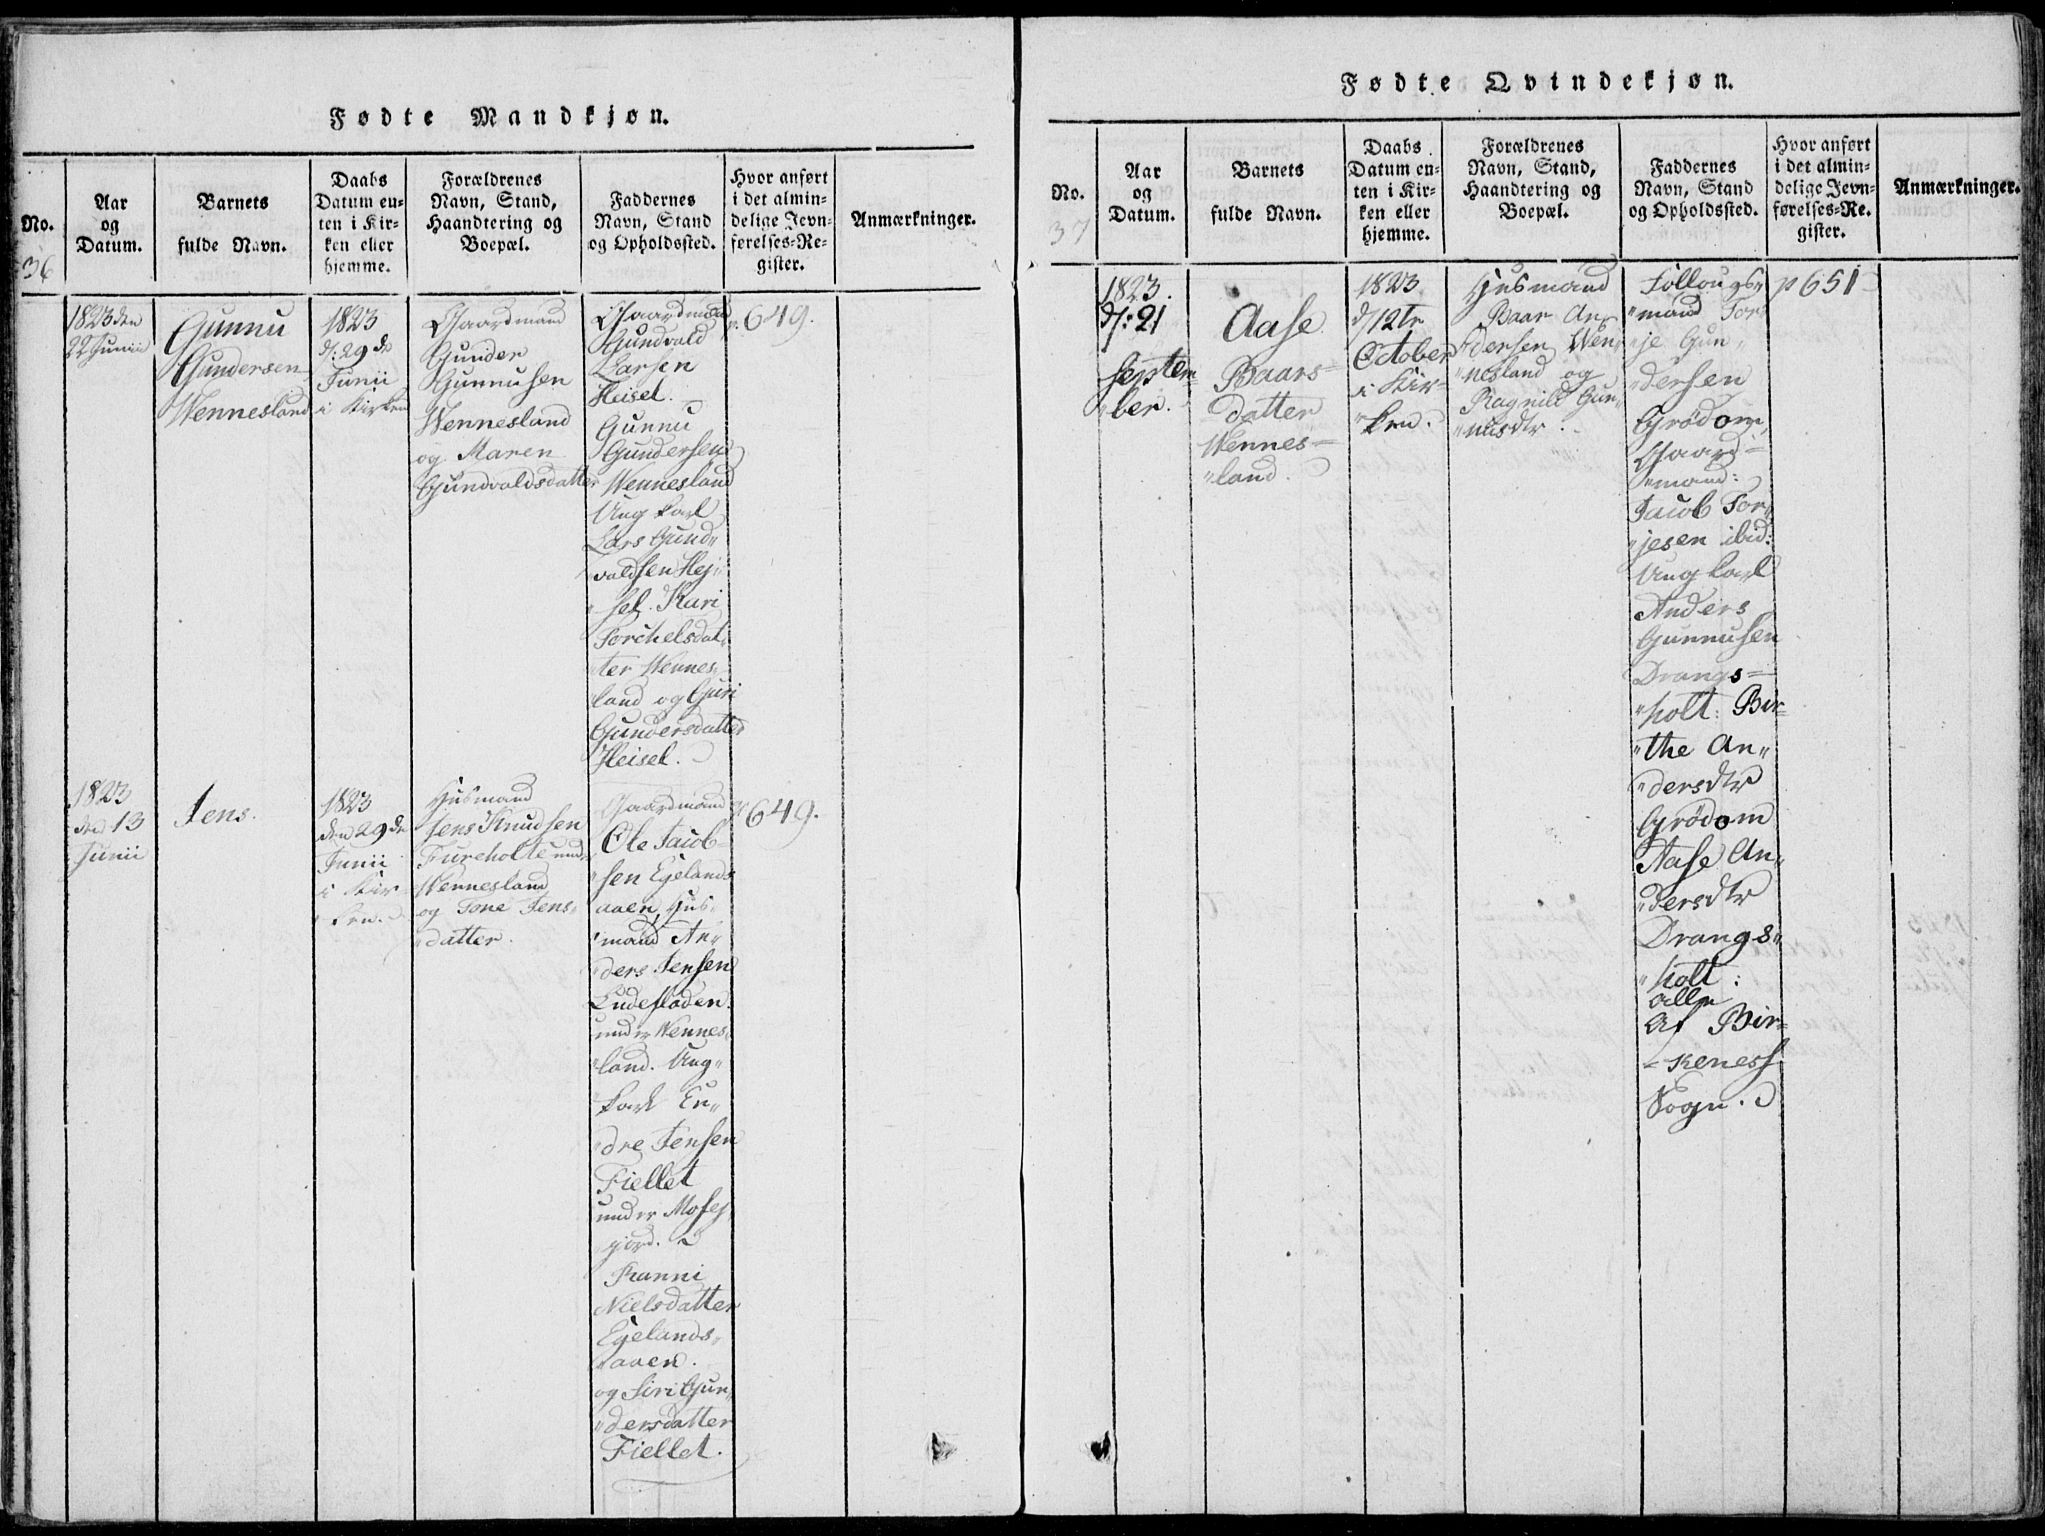 Fødte Mandkjøn.
No.
Aar
og
Datum.
Barnets
fulde Navn.
Daabs
Datum en-
ten i Kir-
ken eller
hjemme.
Forældrenes
Navn, Stand,
Haandtering og
Boepæl.
Faddernes
Navn, Stand
og Opholdssted.
Hvor anført
i det almin-
delige Jevn-
førelses-Re-
gister.
Anmærkninger.
36
1823 den
22 Junii
Gunnu
Gundersen
Wennesland
1823
d: 29de
Junii
i Kirken
Gaardmand
Gunder
Gunnusen
Wennesland
og Maren
Gundvaldsdatter
Gaardmand
Gundvald
Larsen
Heisel.
Gunnu
Gundersen
Wennesland
Ung karl
Lars Gund„
„valdsen Hej„
„sel. Kari
Torchelsdat„
„ter Wennes„
„land og Guri
Gundersdatter
Heisel.
p. 649.
1823
den 13
Junii
Jens.
1823
den 29de
Junii
i Kir
„ken.
Husmand
Jens Knudsen
Fureholte under
Wennesland
og Tone Jens„
„datter.
Gaardmand
Ole Jacob
„sen Egelands
aaen, Hus„
„mand An„
„ders Jensen
Ludesladen
under Wennes„
„land. Ung„
karl En„
„dre Jensen
Fiellet
under Mosej„
gjord.
Ranni
Nielsdatter
Egelands„
„aaen.
og Siri Gun„
„dersdatter
Fiellet.
p 649.
Fødte Qvindekjøn.
No.
Aar
og
Datum.
Barnets
fulde Navn.
Daabs
Datum en-
ten i Kir-
ken eller
hjemme.
Forældrenes
Navn, Stand,
Haandtering og
Boepæl.
Faddernes
Navn, Stand
og Opholdssted.
Hvor anført
i det almin-
delige Jevn-
førelses-Re-
gister.
Anmærkninger.
37
1823.
d: 21
Septem
„ber.
Aase
Baars=
datter
Wennes=
„land.
1823
d/12te
October
i Kir=
„ken.
Husmand
Baar An„
„dersen Wen„
„nesland og
Ragnild Gun„
„nusdtr.
Føllougs„
„mand Tor„
„je Gun„
„dersen
Grödom,
Gaard=
„mand:
Jacob Tor„
„jesen ibid:
Ung karl
Anders
Gunnusen
Drangs=
„holt: Bir=
„the An„
„dersdtr
Grödom
Aase An„
„dersdtr
Drangs„
„holt:
alle
af Bir=
=keness
Sogn.
p 651